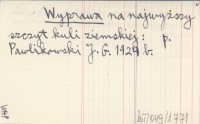 Wyprawa na najwyższy
szczyt kuli ziemskiej: p.
Pawlikowski J. G. 1929 b.